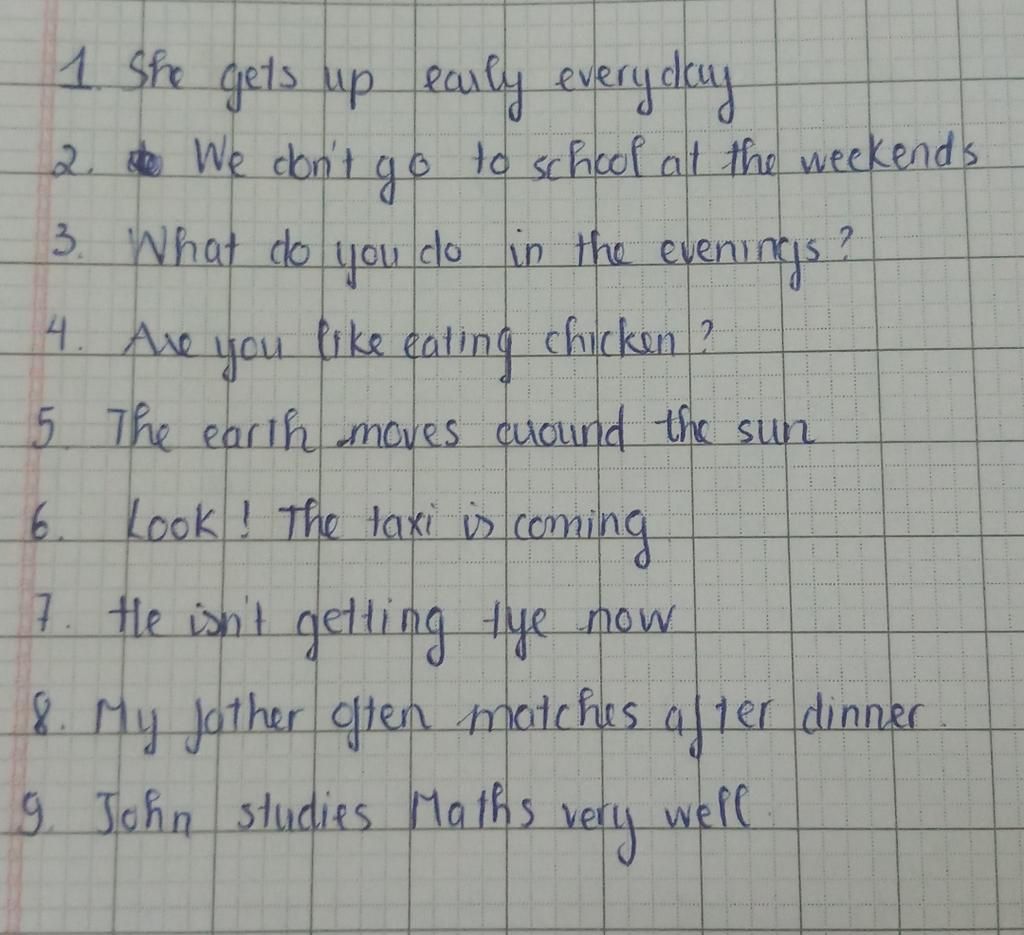 1. She gets up early everyday
2. We don't go to school at the weekends
3. What do you do in the evenings?
4. Are you like eating chicken?
5. The earth moves around the sun
6. Look! The taxi is coming
7. He isn't getting tye now
8. My father often matches after dinner.
9. John studies Maths very well.